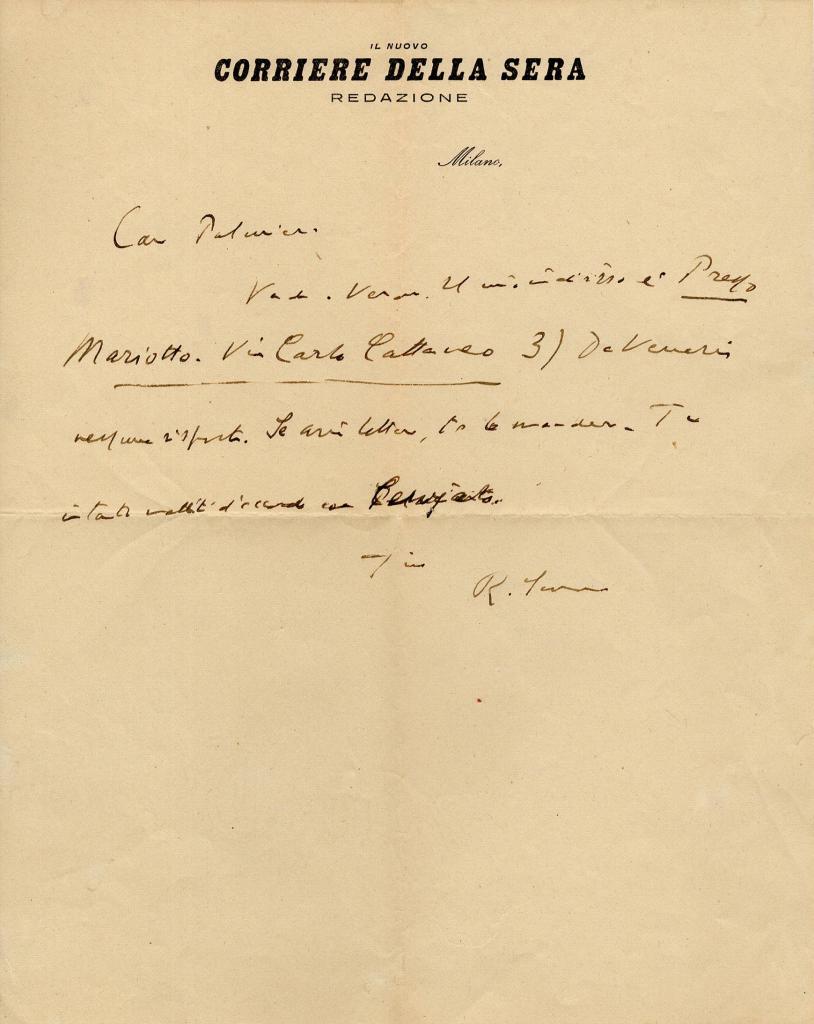 IL NUOVO
CORRIERE DELLA SERA
REDAZIONE
Milano,
Caro Palmieri.
Vado a Verona. Il mio indirizzo è Presso
Mariotto. Via Carlo Cattaneo 3) Da Venezia
nessuna risposta. Se avrò lettera, te la manderò. Tu
intanto mettiti d'accordo con
R.